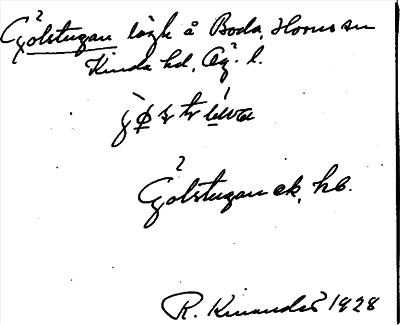 Gölstugan lägh å Boda, Horns sn
Kinda hd, Ög. l.
Gölstugan ek, hb.
R. Kinander 1928